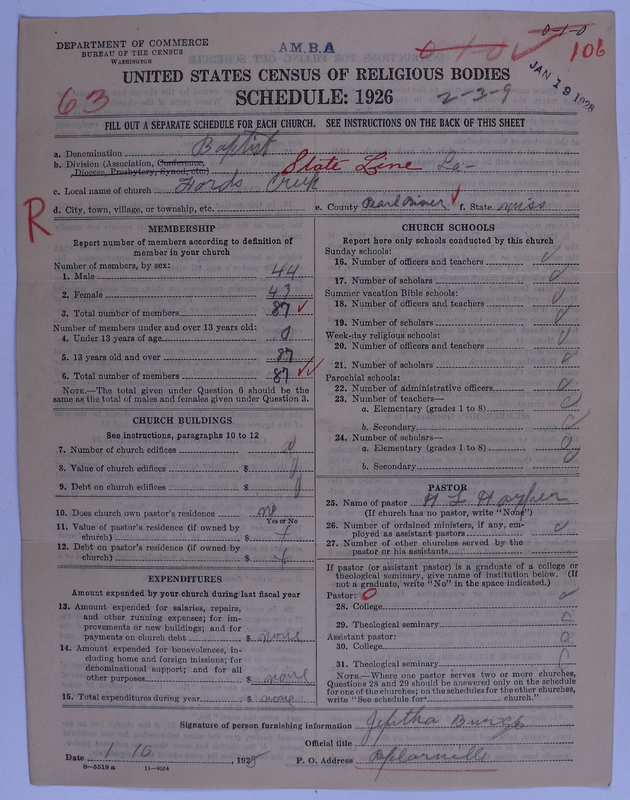 DEPARTMENT OF COMMERCE
BUREAU OF THE CENSUS
WASHINGTON
A.M.B.A
0-1-0
0-1-0
106
JAN 19 1928
UNITED STATES CENSUS OF RELIGIOUS BODIES
63
SCHEDULE: 1926
2-3-9
FILL OUT A SEPARATE SCHEDULE FOR EACH CHURCH. SEE INSTRUCTIONS ON THE BACK OF THIS SHEET
a. Denomination Baptist
b. Division (Association, Conference, Diocese, Presbytery, Synod, etc.) State Line La-
c. Local name of church Fords Creek
R
d. City, town, village, or township, etc. e. County Pearl River f. State Miss
MEMBERSHIP
Report number of members according to definition of
member in your church
Number of members, by sex:
1. Male 44
2. Female 43
3. Total number of members 87
Number of members under and over 13 years old:
4. Under 13 years of age 0
5. 13 years old and over 87
6. Total number of members 87
NOTE.—The total given under Question 6 should be the
same as the total of males and females given under Question 3.
CHURCH BUILDINGS
See instructions, paragraphs 10 to 12
7. Number of church edifices 0
8. Value of church edifices $ 0
9. Debt on church edifices $ 0
10. Does church own pastor's residence? no
Yes or No
11. Value of pastor's residence (if owned by
church) $
12. Debt on pastor's residence (if owned by
church) $
EXPENDITURES
Amount expended by your church during last fiscal year
13. Amount expended for salaries, repairs,
and other running expenses; for im-
provements or new buildings; and for
payments on church debt $ none
14. Amount expended for benevolences, in-
cluding home and foreign missions; for
denominational support; and for all
other purposes $ none
15. Total expenditures during year $ none
CHURCH SCHOOLS
Report here only schools conducted by this church
Sunday schools:
16. Number of officers and teachers 0
17. Number of scholars 0
Summer vacation Bible schools:
18. Number of officers and teachers 0
19. Number of scholars 0
Week-day religious schools:
20. Number of officers and teachers 0
21. Number of scholars 0
Parochial schools:
22. Number of administrative officers 0
23. Number of teachers—
a. Elementary (grades 1 to 8) 0
b. Secondary 0
24. Number of scholars—
a. Elementary (grades 1 to 8) 0
b. Secondary 0
PASTOR
25. Name of pastor H L
(If church has no pastor, write "None")
26. Number of ordained ministers, if any, em-
ployed as assistant pastors 0
27. Number of other churches served by the
pastor or his assistants
If pastor (or assistant pastor) is a graduate of a college or
theological seminary, give name of institution below. (If
not a graduate, write "No" in the space indicated.)
Pastor: 0
28. College
29. Theological seminary
Assistant pastor:
30. College
31. Theological seminary
NOTE.—Where one pastor serves two or more churches,
Questions 28 and 29 should be answered only on the schedule
for one of the churches; on the schedules for the other churches,
write "See schedule for church."
Signature of person furnishing information Jeptha
Official title
Date 1 10, 1928 P. O. Address
8—5518 a 11—9054